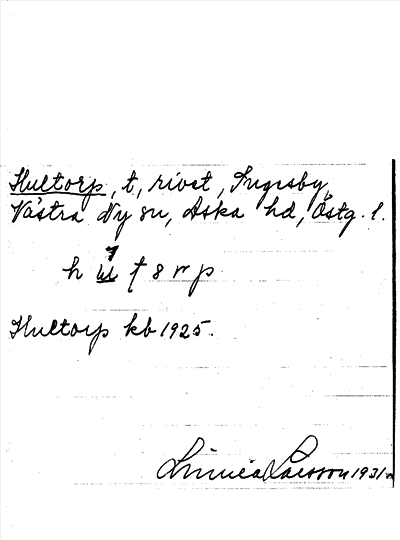 Hultorp, t, rivet, Ingesby,
Västra Ny sn, Aska hd, Östg. l.
Hultorp kb 1925.
Linnea Larsson 1931